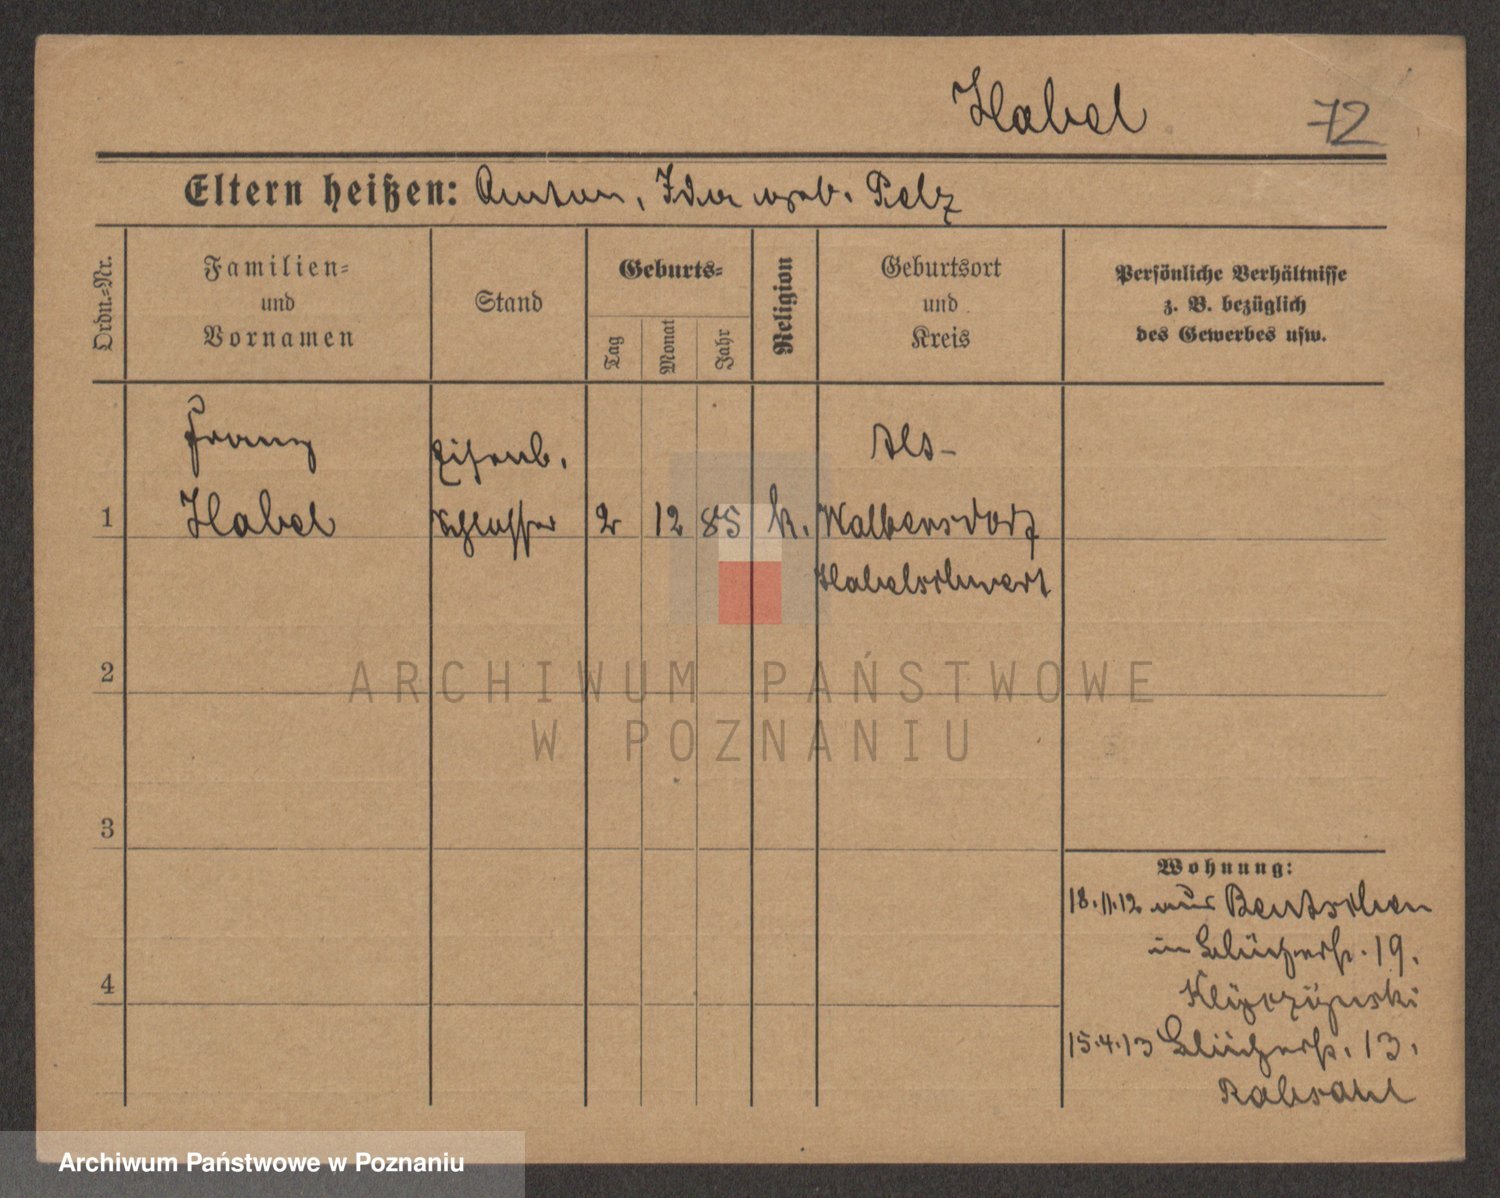 Habel 72
Eltern heißen: Anton, Ida geb. Pelz
Ordn.-Nr.
Familien-
und
Vornamen
Stand
Geburts-
Tag
Monat
Jahr
Religion
Geburtsort
und
Kreis
Persönliche Verhältnisse
z. B. bezüglich
des Gewerbes usw.
1
Franz
Habel
Eisenb.
Schlosser
2
12
85
k.
Alt-
Habelschwert
2
3
4
Wohnung:
18.11.12 aus Bentschen
in Blücherstr. 19.
15.4.13 Blücherstr. 13.
ARCHIWUM PAŃSTWOWE
W POZNANIU
Archiwum Państwowe w Poznaniu